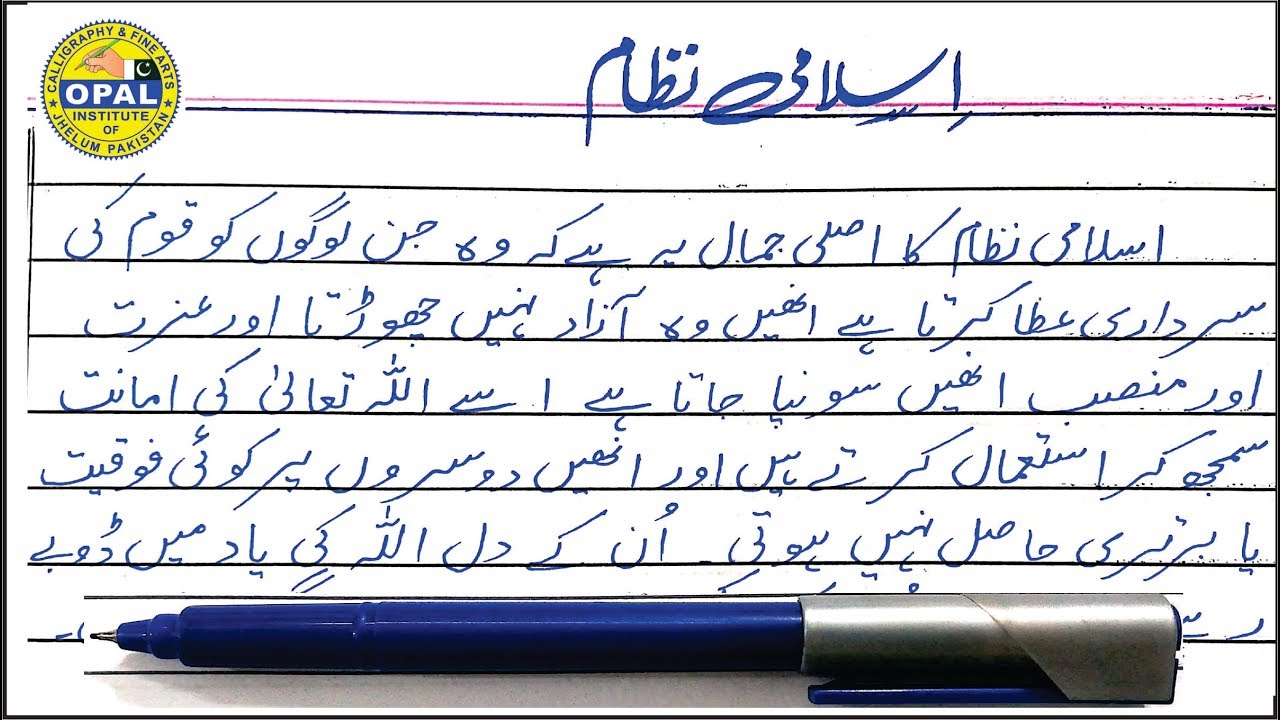 CALLIGRAPHY & FINE ARTS
OPAL
INSTITUTE
OF
JHELUM PAKISTAN
اِسلامی نظام
اسلامی نظام کا اصلی جمال یہ ہے کہ وہ جن لوگوں کو قوم کی
سرداری عطا کرتا ہے انھیں وہ آزاد نہیں چھوڑتا اور عزت
اور منصب انھیں سونپا جاتا ہے اسے اللہ تعالیٰ کی امانت
سمجھ کر استعمال کرتے ہیں اور انھیں دوسروں پر کوئی فوقیت
یا برتری حاصل نہیں ہوتی۔ اُن کے دل اللہ کی یاد میں ڈوبے